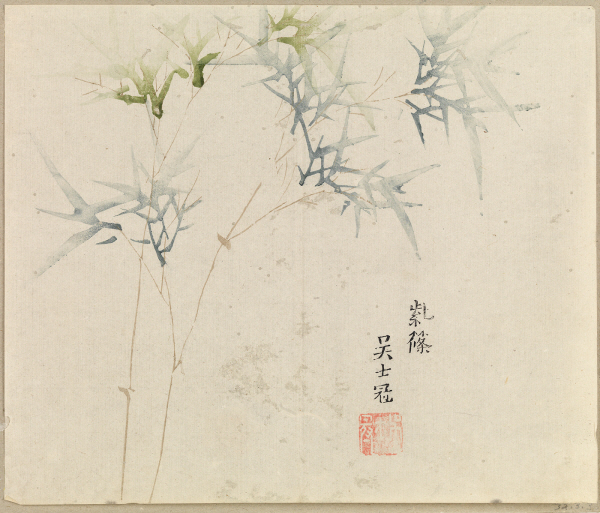 紫篠
吴士冠